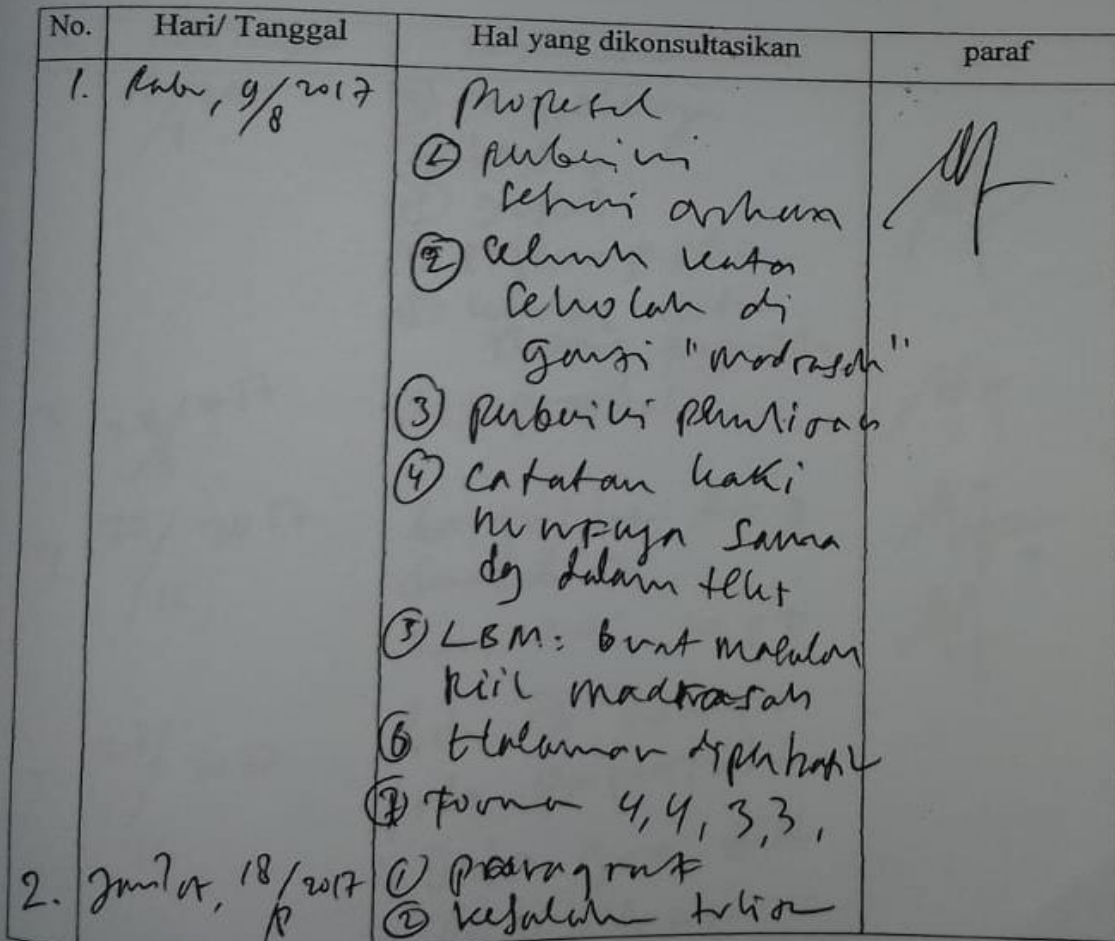 No. Hari/ Tanggal Hal yang dikonsultasikan paraf
1. Rabu, 9/8 2017 Proposal
① perbaiki
sesuai arahan
② seluruh kata
sekolah di
ganti "madrasah"
③ perbaiki penulisan
④ catatan kaki
sama
dg dalam teks
⑤ LBM: buat masalah
riil madrasah
⑥ Halaman
⑦ 4, 4, 3, 3,
2. Jum'at, 18/8 2017 ① paragraf
② kesalahan